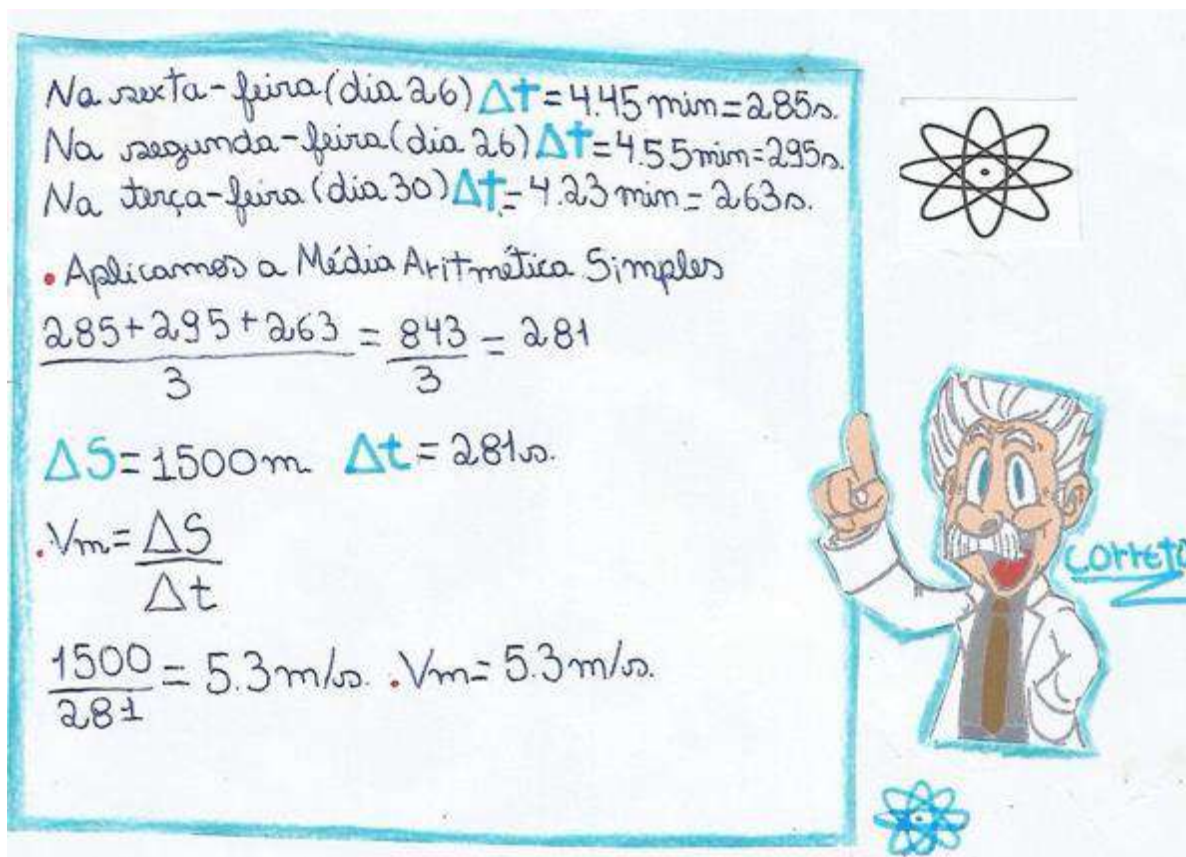 Na sexta-feira (dia 26) Δt = 4.45 min = 285s.
Na segunda-feira (dia 26) Δt = 4.55 min = 295s.
Na terça-feira (dia 30) Δt = 4.23 min = 263s.
• Aplicamos a Média Aritmética Simples
285 + 295 + 263 = 843 = 281
3 3
ΔS = 1500m Δt = 281s.
. Vm = ΔS
Δt
1500 = 5.3 m/s. . Vm = 5.3 m/s.
281
correto